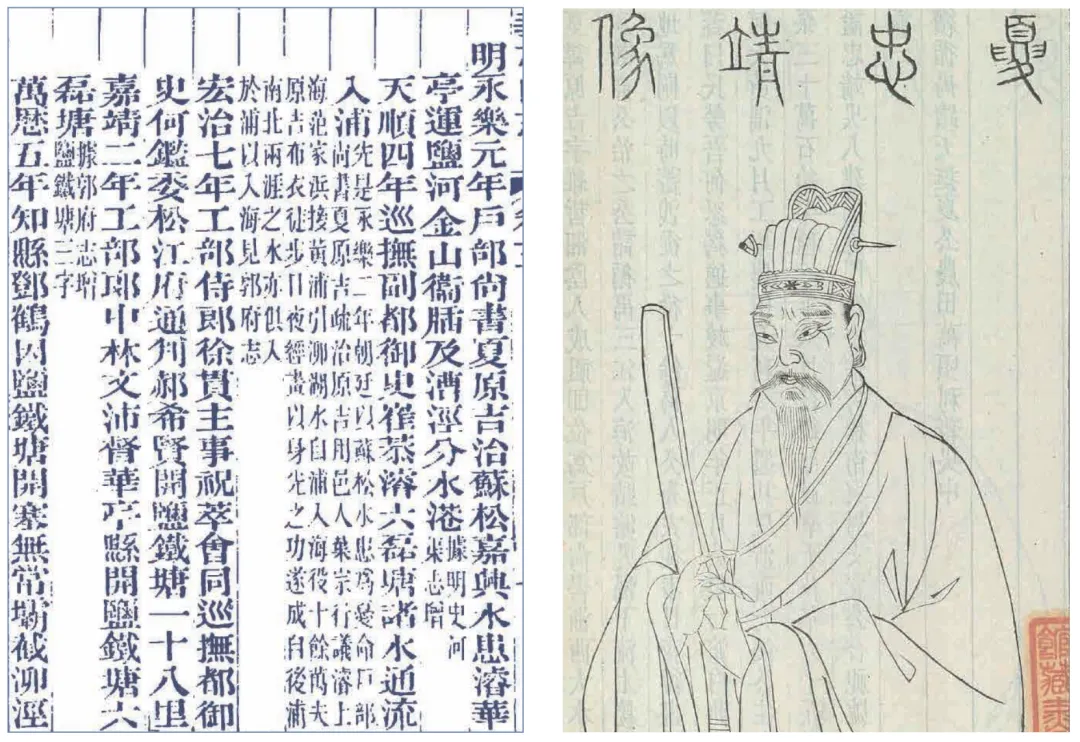 明永樂元年戶部尚書夏原吉治蘇松嘉興水患濬華
亭運鹽河金山衞牐及漕涇分水港
據明史河
渠志增
天順四年巡撫副都御史崔恭濬六磊塘諸水通流
入浦
先是永樂二年朝廷以蘇松水患爲憂命戶部
尚書夏原吉疏治原吉用邑人葉宗行議濬上
海范家浜接黃浦引泖湖水自浦入海役十餘萬夫
原吉布衣徒步日夜經畫以身先之功遂成自後浦
南北兩涯之水亦俱入
於浦以入海見郭府志
宏治七年工部侍郎徐貫主事祝萃會同巡撫都御
史何鑑委松江府通判郝希賢開鹽鐵塘一十八里
嘉靖二年工部郎中林文沛督華亭縣開鹽鐵塘六
磊塘
據郭府志增
鹽鐵塘三字
萬厯五年知縣鄧鶴因鹽鐵塘開塞無常壩截泖涇
夏忠靖像
館藏